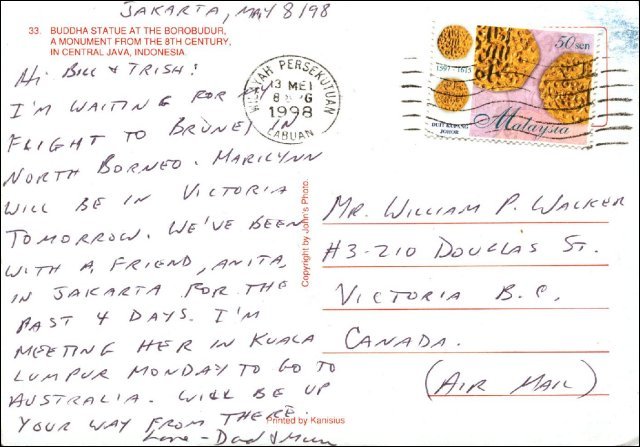 JAKARTA, MAY 8/98
33. BUDDHA STATUE AT THE BOROBUDUR,
A MONUMENT FROM THE 8TH CENTURY,
IN CENTRAL JAVA, INDONESIA
Hi BILL & TRISH!
I'M WAITING FOR MY
FLIGHT TO BRUNEI IN
NORTH BORNEO. MARILYNN
WILL BE IN VICTORIA
TOMORROW. WE'VE BEEN
WITH A FRIEND, ANITA,
IN JAKARTA FOR THE
PAST 4 DAYS. I'M
MEETING HER IN KUALA
LUMPUR MONDAY TO GO TO
AUSTRALIA. WILL BE UP
YOUR WAY FROM THERE.
Love - Dad & Mum
Printed by Kanisius
Copyright by John's Photo.
WILAYAH PERSEKUTUAN
13 MEI
1998
LABUAN
50 sen
1597-1615
DUIT KUPANG
JOHOR
Malaysia
MR. WILLIAM P. WALKER
#3-210 DOUGLAS ST.
VICTORIA B.C.
CANADA.
(AIR MAIL)